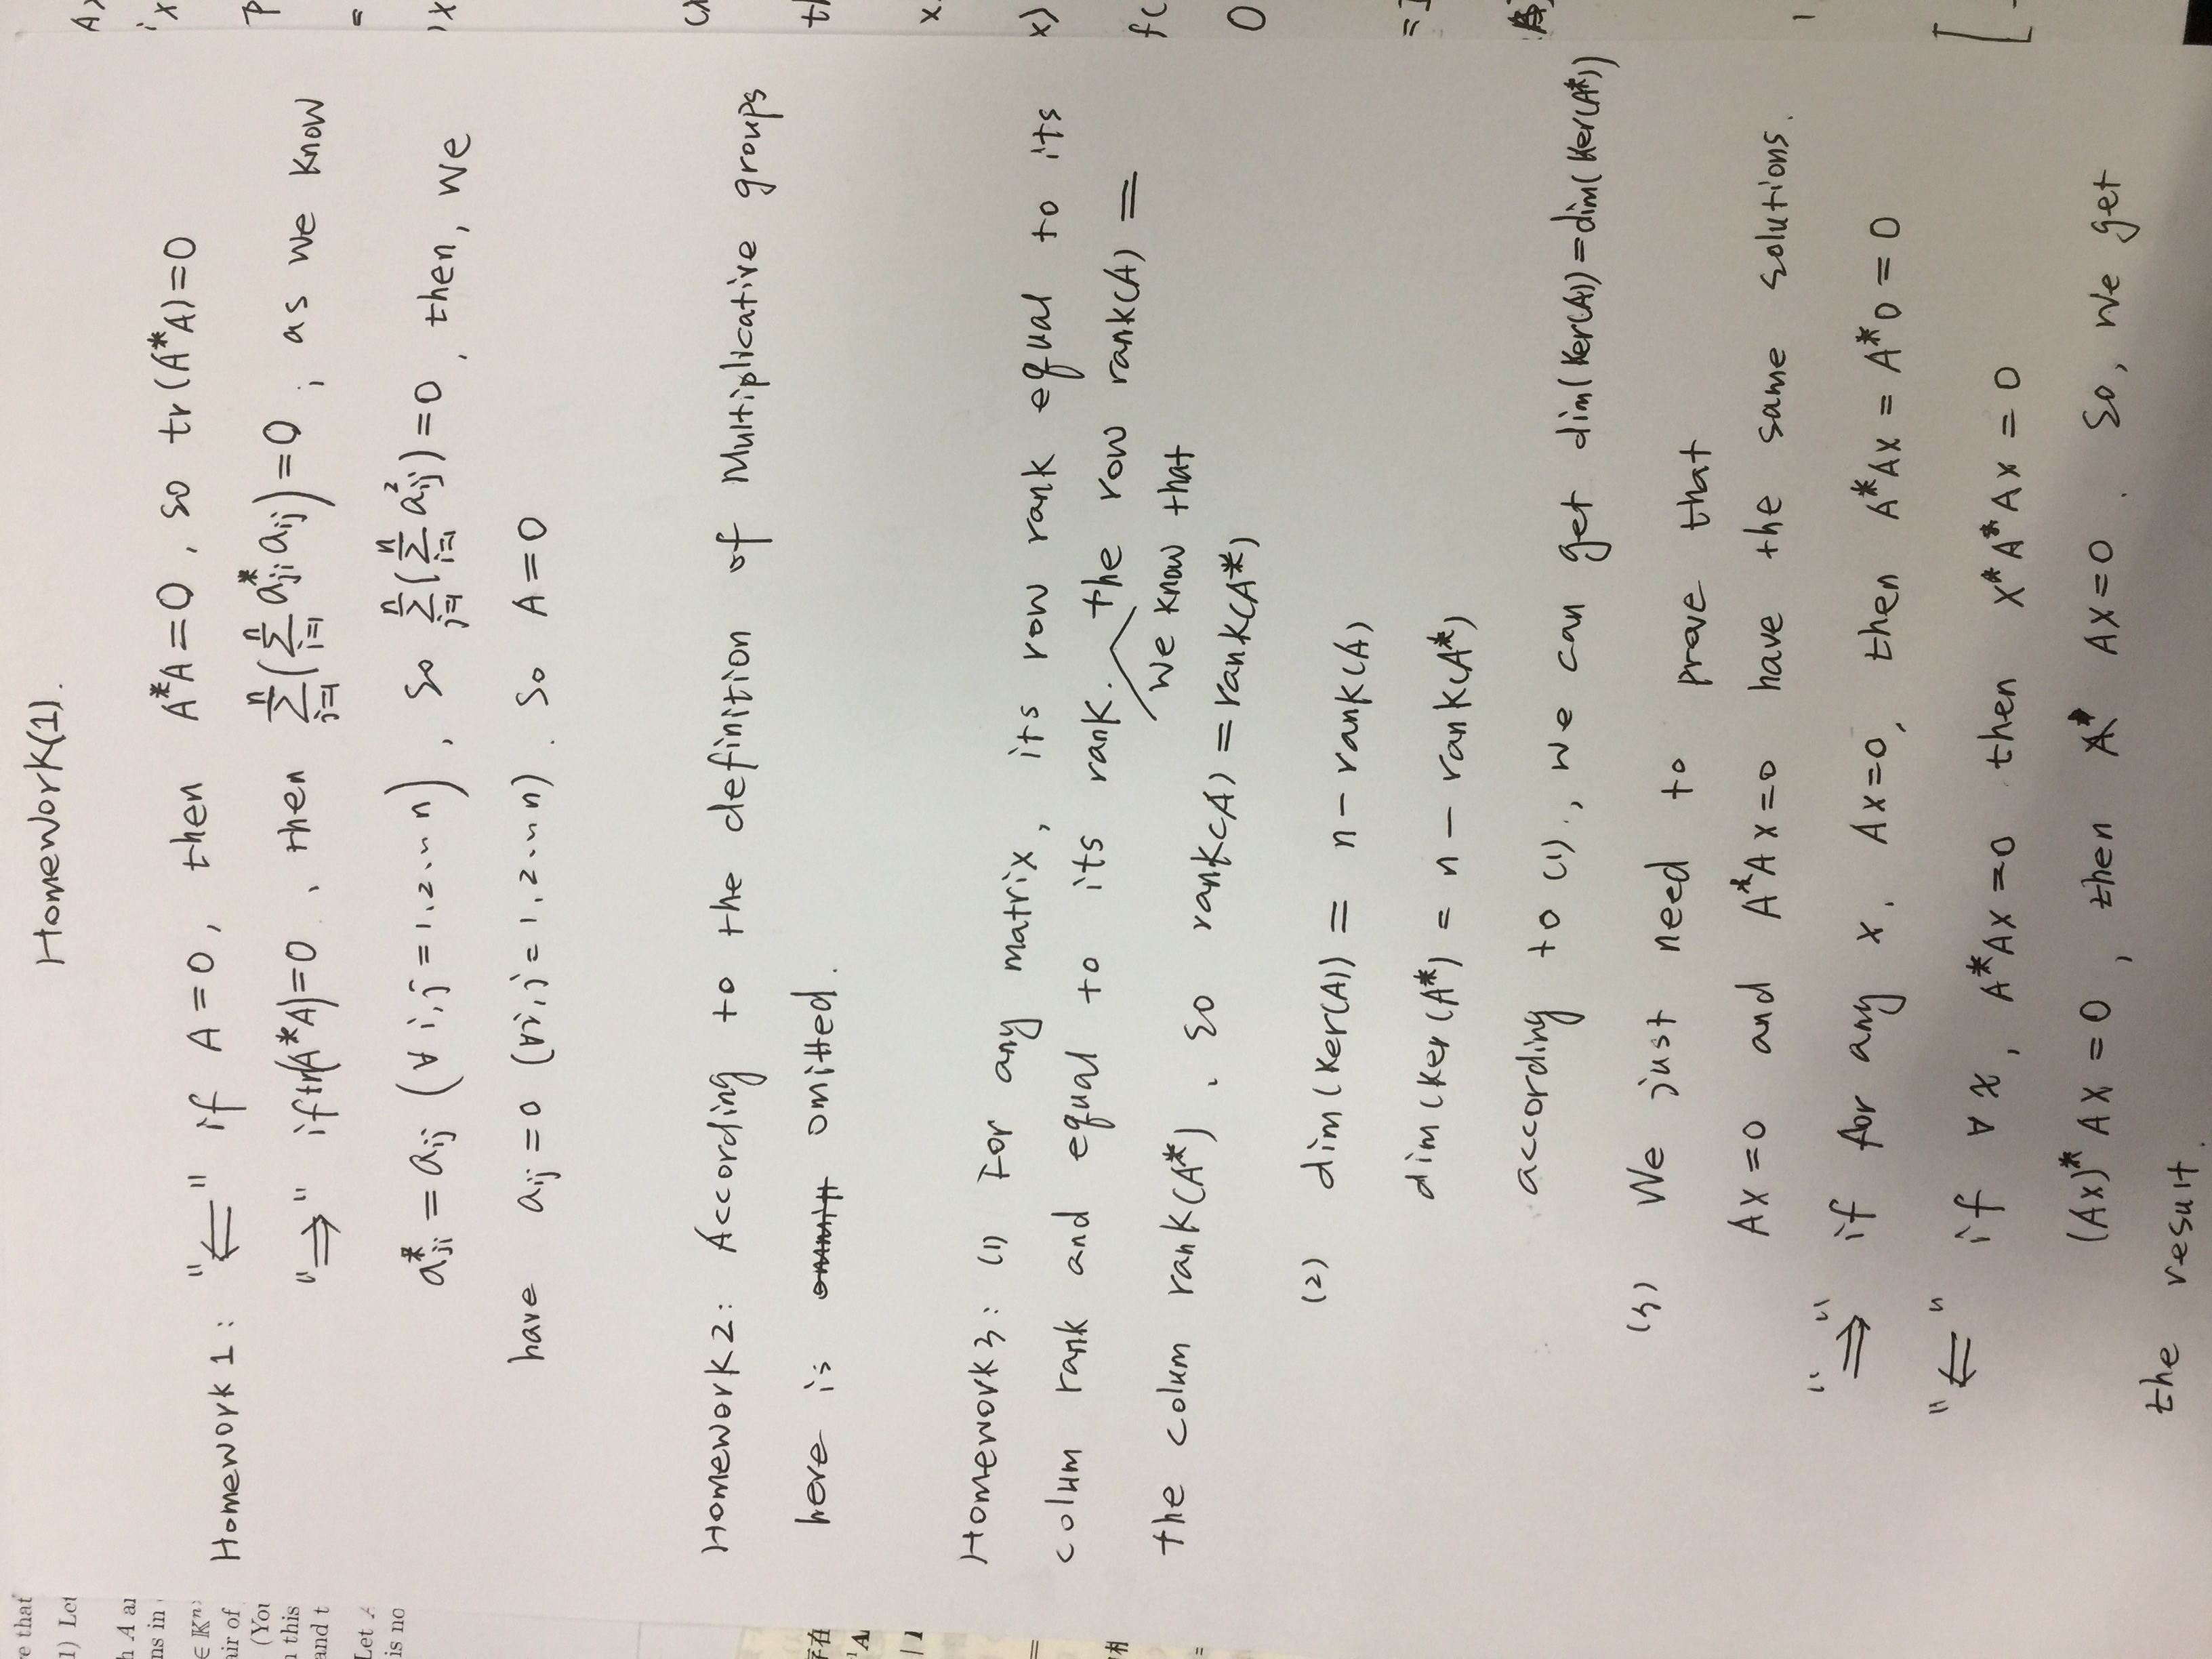 Homework(1).
Homework 1: "⇐" if A=0, then A*A=0, so tr(A*A)=0
"⇒" if tr(A*A)=0, then ∑_{j=1}^{n}(∑_{i=1}^{n} a*_{ji} a_{ij})=0, as we know
a*_{ji} = a_{ij} (∀ i,j = 1,2...n), so ∑_{j=1}^{n}(∑_{i=1}^{n} a²_{ij})=0, then, we
have a_{ij}=0 (∀i,j = 1,2...n). So A=0
Homework 2: According to the definition of Multiplicative groups
here is omitted.
Homework 3: (1) For any matrix, its row rank equal to its
colum rank and equal to its rank. we know that the row rank(A) =
the colum rank(A*), so rank(A) = rank(A*)
(2) dim(Ker(A)) = n - rank(A)
dim(Ker(A*) = n - rank(A*)
according to (1)., we can get dim(Ker(A))=dim(Ker(A*))
(3) We just need to prove that
Ax=0 and A*Ax=0 have the same solutions.
"⇒" if for any x, Ax=0, then A*Ax = A*0 = 0
"⇐" if ∀x, A*Ax=0 then x*A*Ax = 0
(Ax)* Ax = 0, then Ax=0. So, we get
the result.
e that
1) Let
ns in
∈ Kⁿ
air of
(You
this
and t
Let
is no
存在